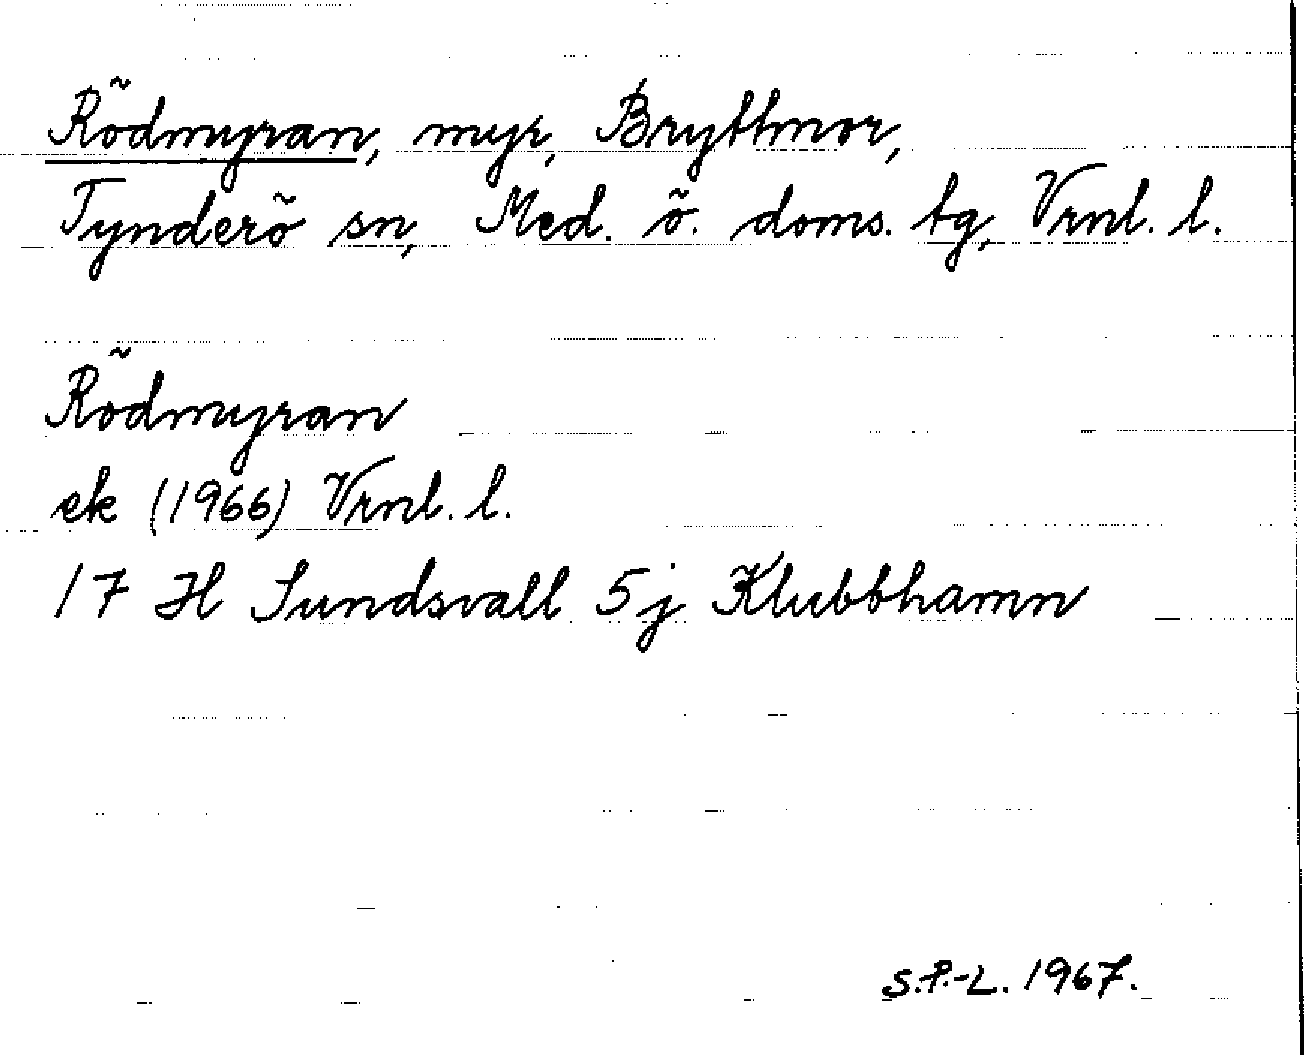 Rödmyran, myr, Bryttmor,
Tynderö sn, Med. ö. doms. tg, Vrnl. l.
Rödmyran
ek (1966) Vrnl. l.
17 H Sundsvall 5j Klubbhamn
S.P.-L. 1967.